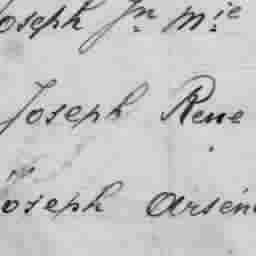 Joseph Jn Mie
Joseph Rene
Joseph Arsén